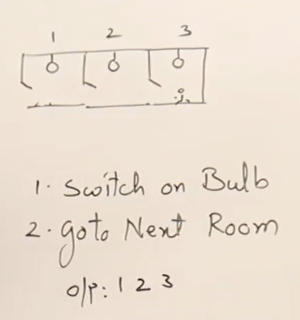 1 2 3
1. Switch on Bulb
2. goto Next Room
o/p: 1 2 3